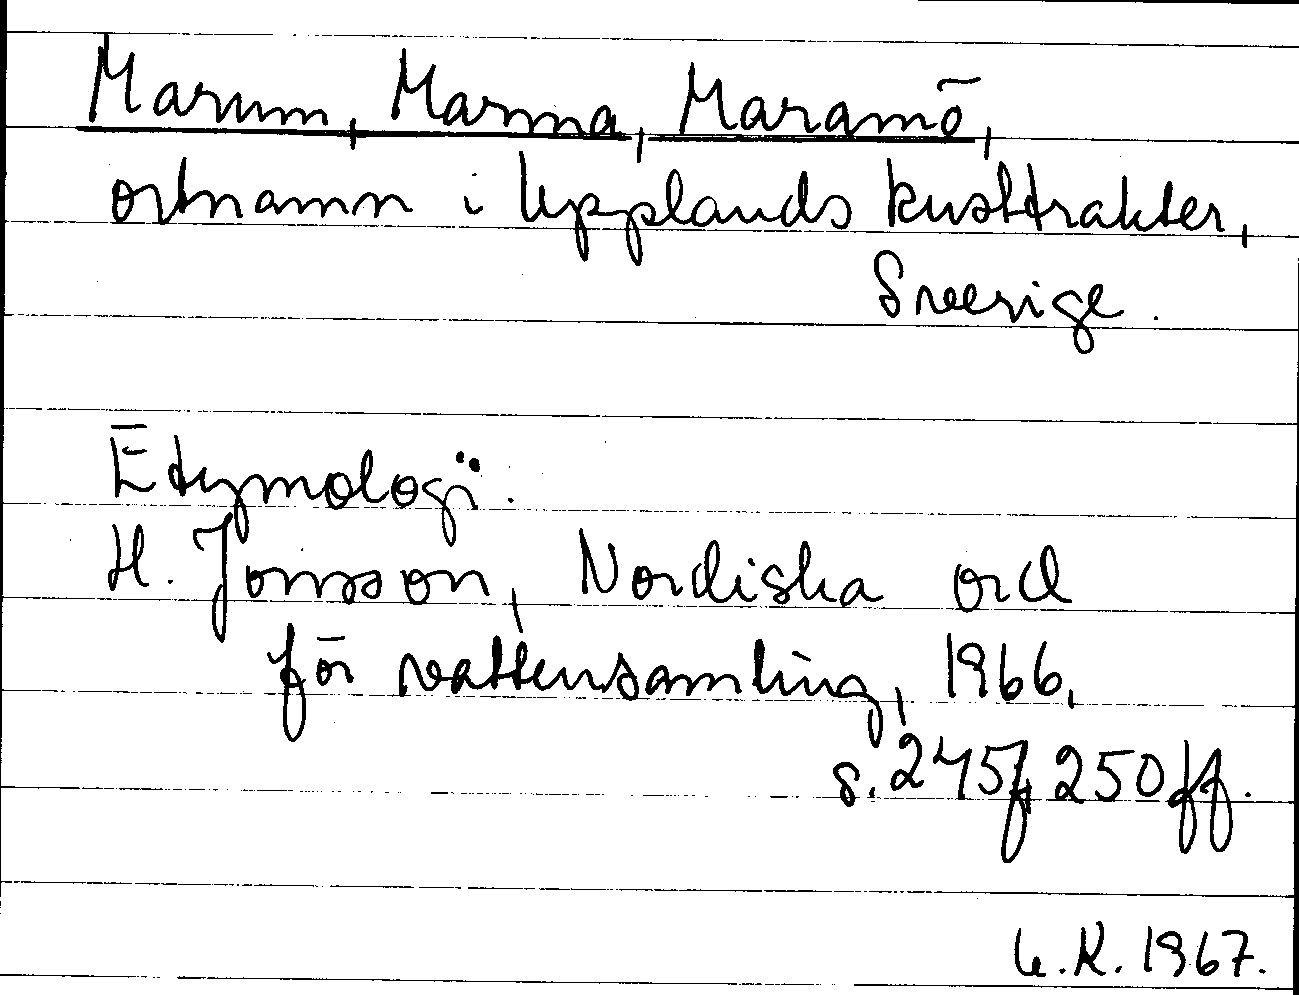 Marum, Marma, Maramö,
ortnamn i Upplands kusttrakter,
Sverige.
Etymologi.
H. Jonsson, Nordiska ord
för vattensamling, 1966,
s. 245f, 250ff.
U.K. 1967.